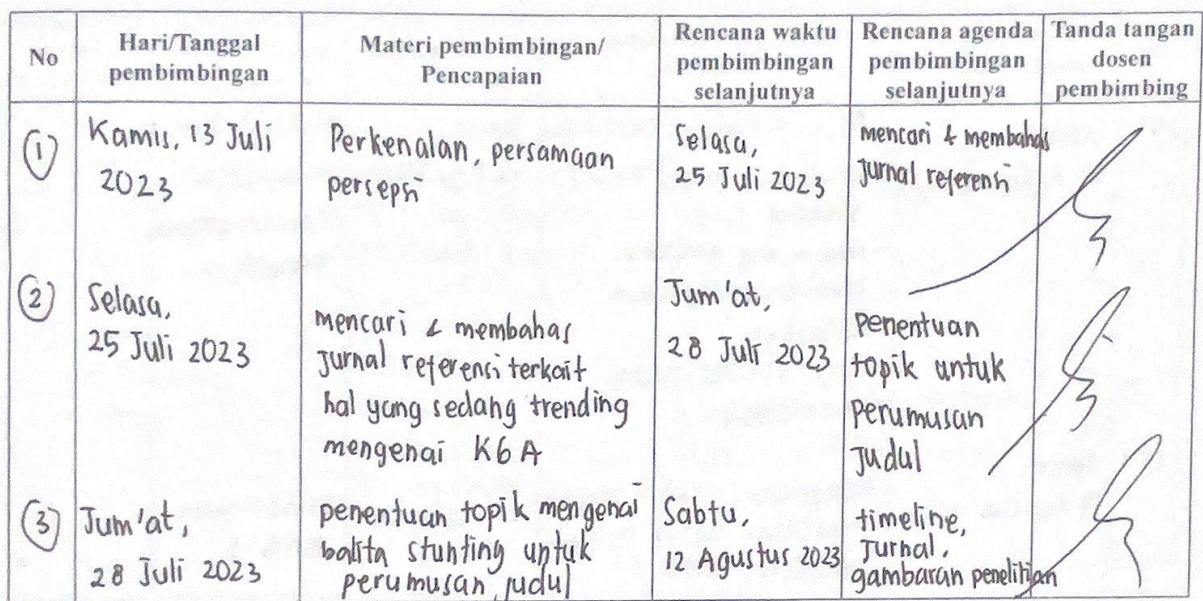 No
Hari/Tanggal
pembimbingan
Materi pembimbingan/
Pencapaian
Rencana waktu
pembimbingan
selanjutnya
Rencana agenda
pembimbingan
selanjutnya
Tanda tangan
dosen
pembimbing
1
Kamis, 13 Juli
2023
Perkenalan, persamaan
persepsi
Selasa,
25 Juli 2023
mencari & membahas
jurnal referensi
2
Selasa,
25 Juli 2023
mencari & membahas
jurnal referensi terkait
hal yang sedang trending
mengenai KGA
Jum'at,
28 Juli 2023
Penentuan
topik untuk
perumusan
judul
3
Jum'at,
28 Juli 2023
penentuan topik mengenai
balita stunting untuk
perumusan judul
Sabtu,
12 Agustus 2023
timeline,
jurnal,
gambaran penelitian